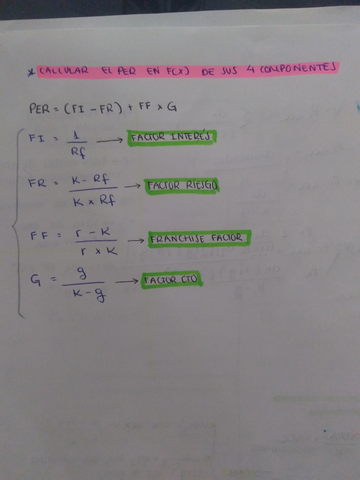 * CALCULAR EL PER EN F(X) DE SUS 4 COMPONENTES
PER = (FI - FR) + FF x G
FI = 1 / Rf → FACTOR INTERÉS
FR = K - Rf / K x Rf → FACTOR RIESGO
FF = r - K / r x K → FRANCHISE FACTOR
G = g / K - g → FACTOR CTO